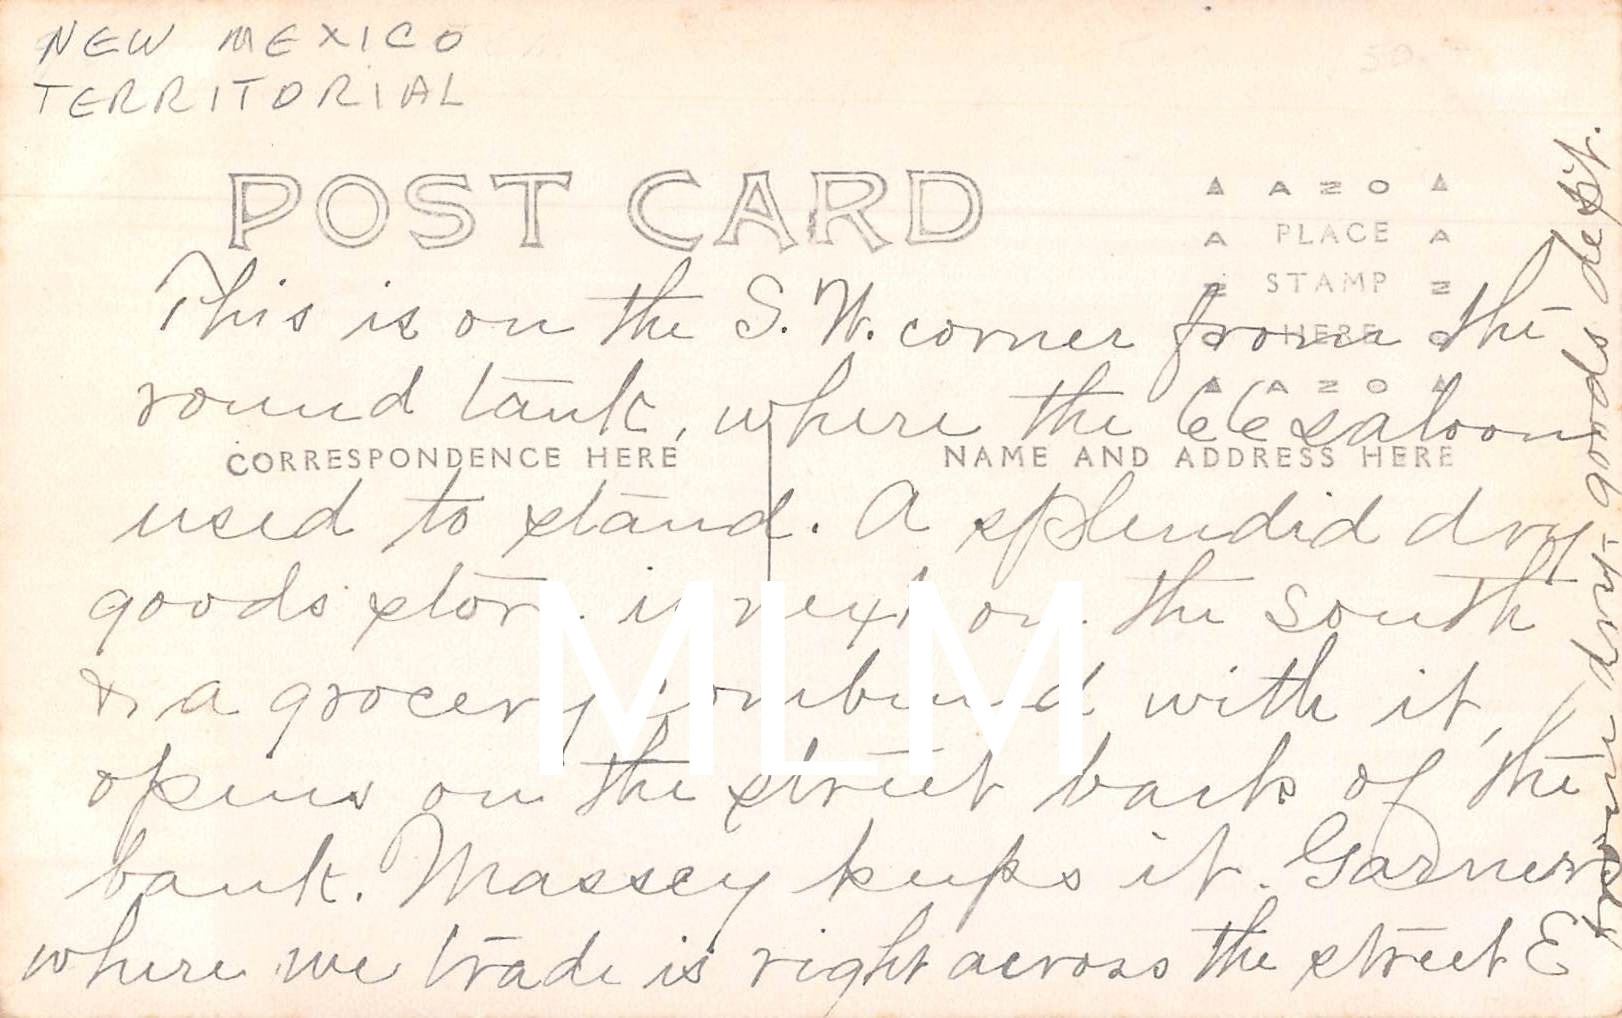 NEW MEXICO
TERRITORIAL
POST CARD
AZO
PLACE
STAMP
HERE
AZO
CORRESPONDENCE HERE
NAME AND ADDRESS HERE
This is on the S.W. corner from the
round tank, where the 66 saloon
used to stand. A splendid dry
goods store is next on the south
& a grocery combined with it,
opens on the street back of the
bank. Massey keeps it. Garners
where we trade is right across the street E
from dry-goods dept.
MLM